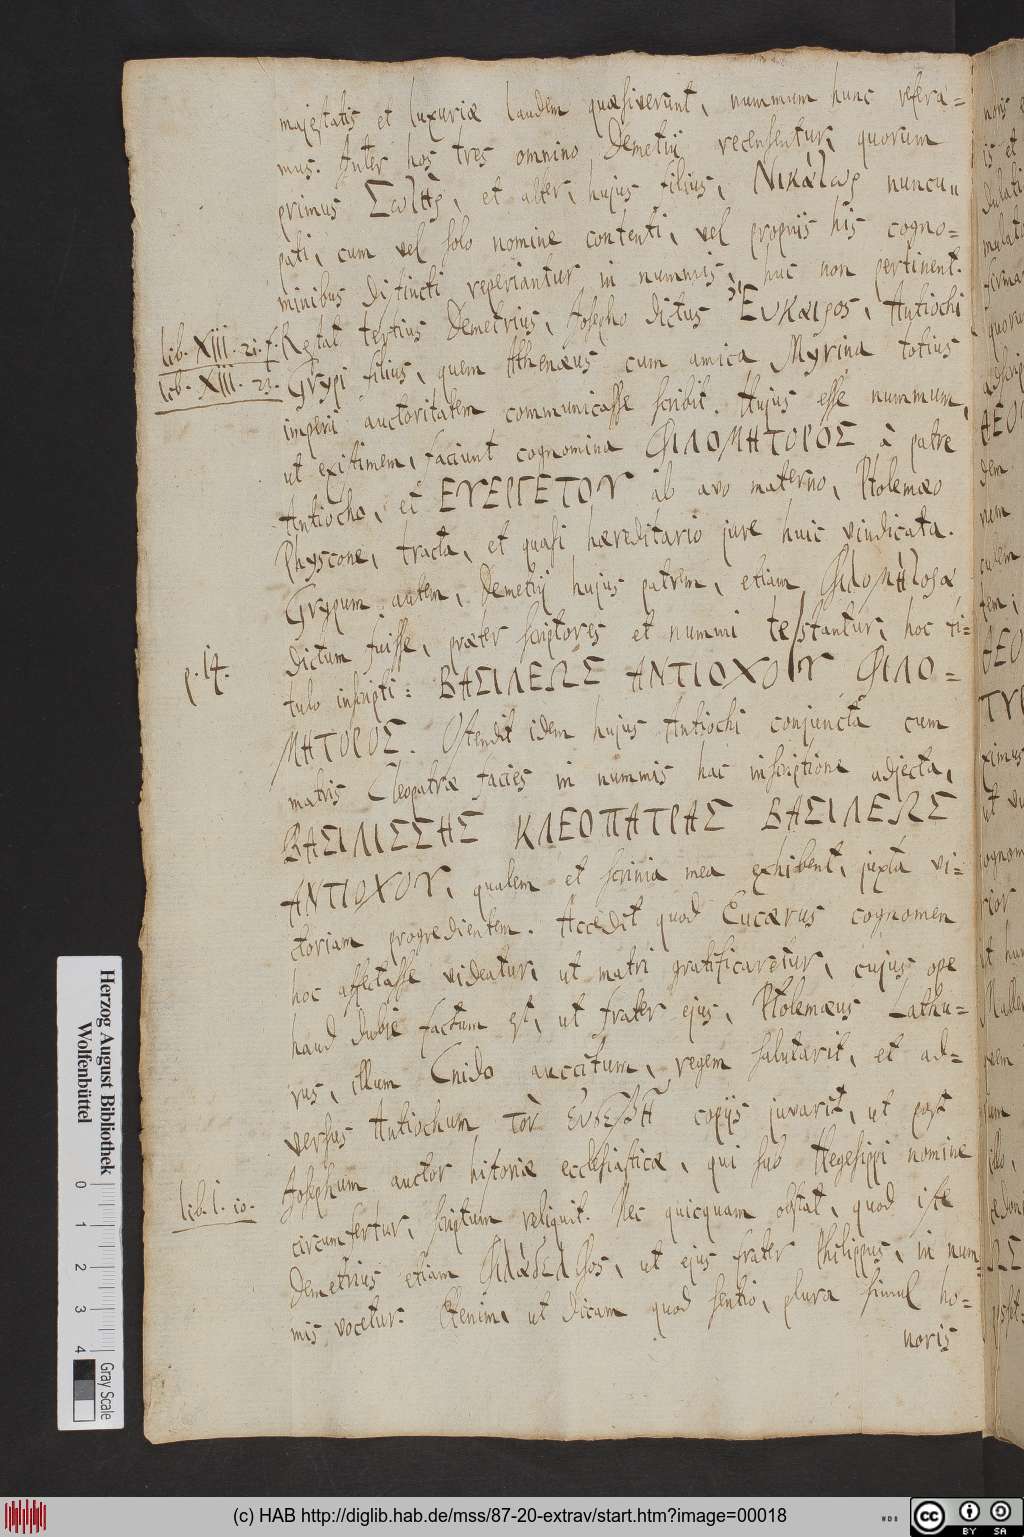 majestatis et luxuriæ laudem quæsiverunt, nummum hunc refera=
mus. Inter hos tres omnino Demetrii recensentur, quorum
primus Σωτὴρ, et alter, hujus filius, Νικάτωρ nuncu=
pati, cum vel solo nomine contenti, vel propriis his cogno=
minibus distincti reperiantur in nummis, huc non pertinent.
lib. XIII. 21. f.
Restat tertius Demetrius, Josepho dictus Ἔυκαιρος, Antiochi
lib. XIII. 23.
Grypi filius, quem Athenæus cum amica Myrina totius
imperii auctoritatem communicasse scribit. Hujus esse nummum,
ut existimem, faciunt cognomina ΦΙΛΟΜΗΤΟΡΟΣ, à patre
Antiocho, et ΕΥΕΡΓΕΤΟΥ ab avo materno, Ptolemæo
Physcone, tracta, et quasi hæreditario jure huic vindicata.
Grypum autem, Demetrij hujus patrem, etiam Φιλομήτορα
dictum fuisse, præter scriptores et nummi testantur, hoc ti=
p. 14.
tulo inscripti: ΒΑΣΙΛΕΩΣ ΑΝΤΙΟΧΟΥ ΦΙΛΟ=
ΜΗΤΟΡΟΣ. Ostendit idem hujus Antiochi conjuncta cum
matris Cleopatræ facies in nummis hac inscriptione adjecta,
ΒΑΣΙΛΙΣΣΗΣ ΚΛΕΟΠΑΤΡΑΣ ΒΑΣΙΛΕΩΣ
ΑΝΤΙΟΧΟΥ, qualem et scrinia mea exhibent, juxta vi=
ctoriam progredientem. Accedit quod Eucærus cognomen
hoc affectasse videatur, ut matri gratificaretur, cujus ope
haud dubie factum est, ut frater ejus, Ptolemæus Lathu=
rus, illum Cnido accitum, regem salutarit, et ad=
versus Antiochum τὸν Ευσεβῆ copijs juvarit, ut post
Josephum auctor historiæ ecclesiasticæ, qui sub Hegesippi nomine
lib. I. 10.
circumfertur, scriptum reliquit. Nec quicquam obstat, quod iste
Demetrius etiam Φιλάδελφος, ut ejus frater Philippus, in num=
mis vocetur. Etenim, ut dicam quod sentio, plura simul ho=
noris
Herzog August Bibliothek
Wolfenbüttel
0 1 2 3 4
Gray Scale
(c) HAB http://diglib.hab.de/mss/87-20-extrav/start.htm?image=00018
WDB
cc BY SA